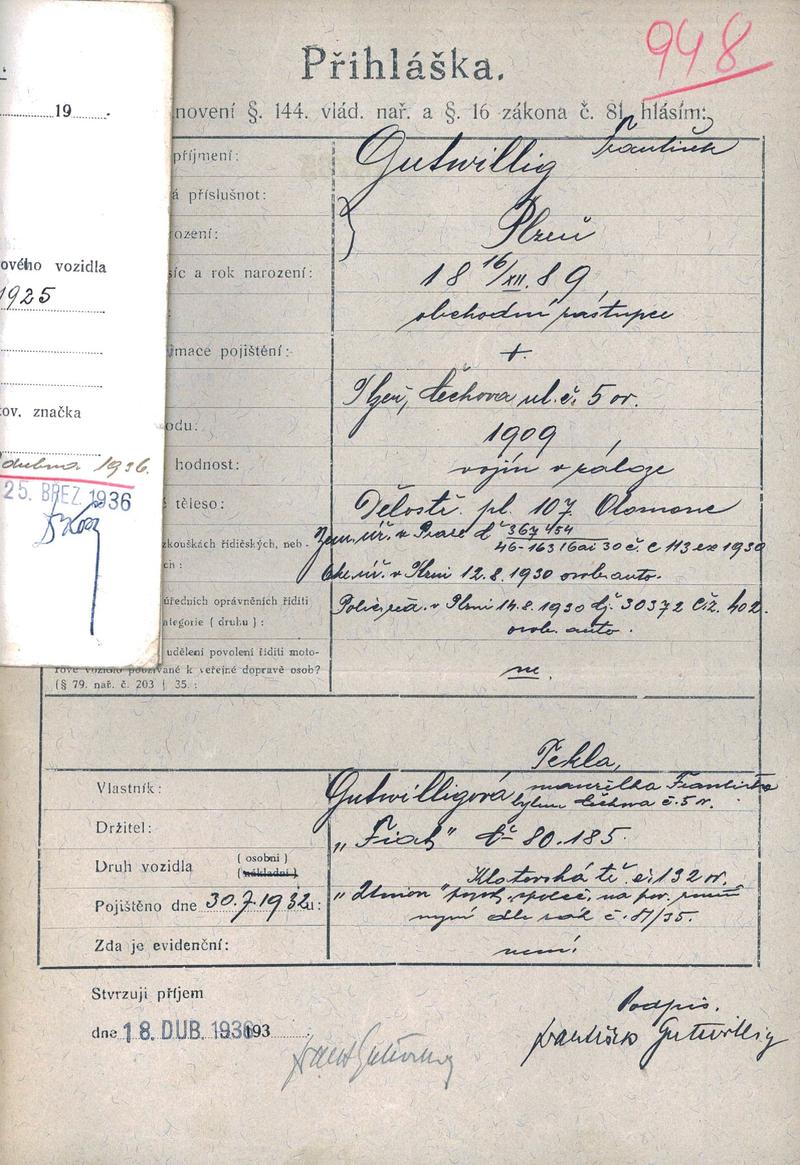 948
Přihláška.
novení §. 144. vlád. nař. a §. 16 zákona č. 81, hlásím:
příjmení: Gutwillig František
á příslušnot:
ození: Plzeň
síc a rok narození: 18 16/XII. 89
obchodní zástupce
mace pojištění: +
Plzeň, Čechova ul. č. 5 or.
odu: 1909
hodnost: vojín v záloze
é těleso: Dělostř. pl. 107 Olomouc
zkouškách řidičských, neb- Zem. úř. v Praze č 367 454
46-163/16ai 30 č. C 113 ex 1930
ch: Okr. úř. v Plzni 12.8.1930 osob. auto.
úředních oprávněních říditi Polic. řed. v Plzni 14.8.1930 čj. 30372 čiž. 402.
ategorie (druhu): osob. auto.
udělení povolení říditi moto-
rové vozidlo používané k veřejné dopravě osob? ne.
(§ 79. nař. č. 203 | 35.:
19
ového vozidla
1925
ov. značka
dubna 1936.
25. BŘEZ. 1936
Tekla,
Vlastník: Gutwilligová, manželka Františka
bytem Čechova č. 5 or.
Držitel: „Fiat" č 80.185.
Druh vozidla (osobní)
(nákladní)
Klatovská tř. č. 132 or.
Pojištěno dne 30.7.1932 u: „Union" pojišť. společ. na pov. ručení
nyní dle zák č. 81/35.
Zda je evidenční: není.
Stvrzuji příjem
dne 18. DUB. 1936 193
Podpis.
František Gutwillig